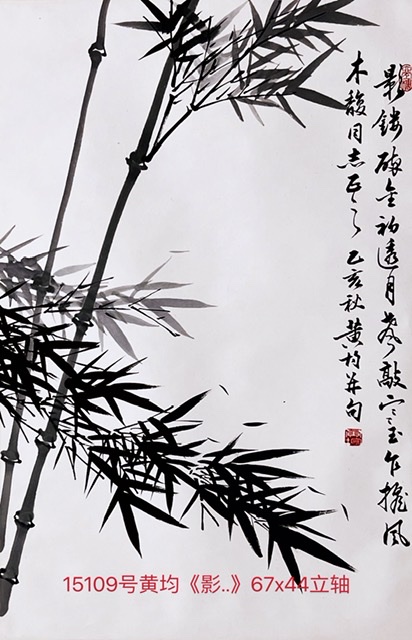 影鏤碎金初透月聲敲寒玉乍搖風
木馥同志正之 乙亥秋黄均并句
15109号黄均《影..》67x44立轴